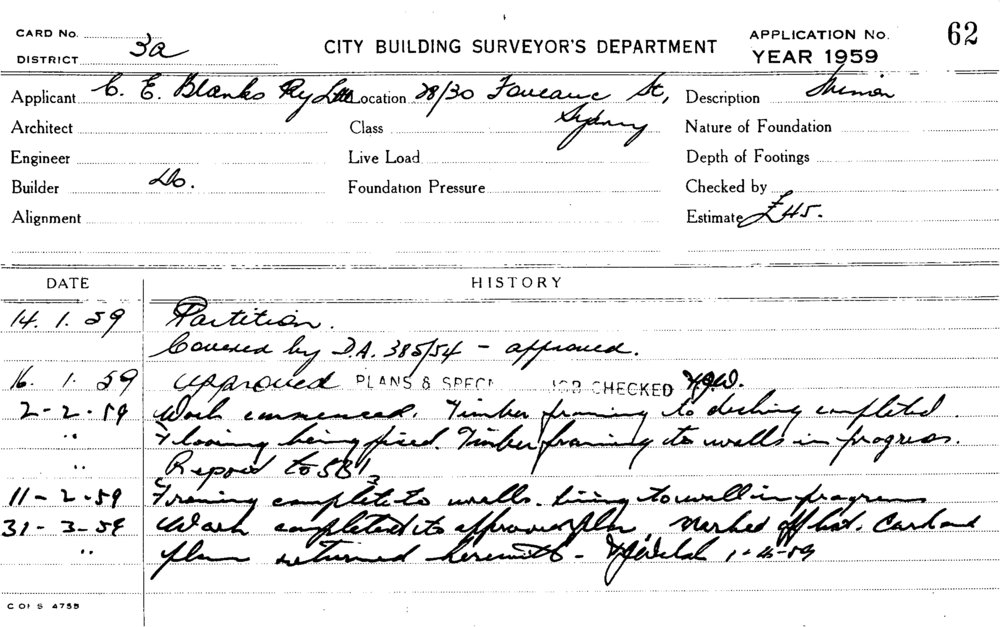 CARD No.
3a
DISTRICT
CITY BUILDING SURVEYOR'S DEPARTMENT
APPLICATION No. 62
YEAR 1959
Applicant C. E. Blanks Pty Ltd Location 28/30 St, Description
Architect Class Sydney Nature of Foundation
Engineer Live Load Depth of Footings
Builder Do. Foundation Pressure Checked by
Alignment Estimate £45.
DATE HISTORY
14. 1. 59 Partition.
Covered by D.A. 385/54 - approved.
16. 1. 59 approved PLANS & SPECI JOB CHECKED
2-2-59 Work commenced. Timber framing to decking completed.
" Flooring being fixed. Timber framing to walls in progress.
" Report to SBI
11-2-59 Framing complete to walls. Lining to wall in progress
31-3-59 Work completed to approved plan. Marked off list. Card and
" plan returned herewith - 1-4-59
C OF S 4755